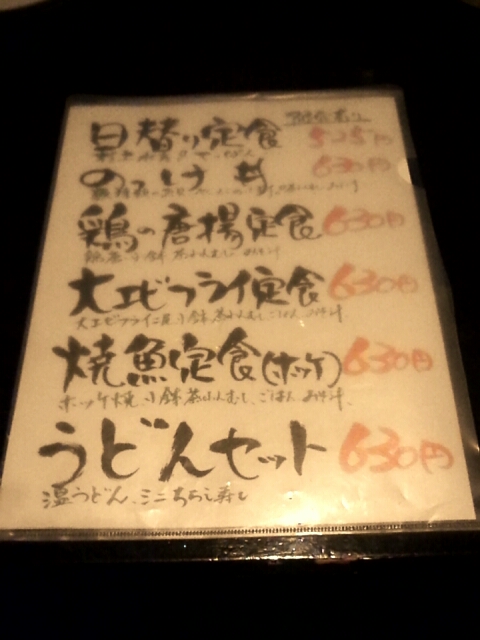 日替り定食 525円
のっけ丼 630円
鶏の唐揚定食 630円
大エビフライ定食 630円
大エビフライ二尾、小鉢、茶わんむし、ごはん、みそ汁
焼魚定食(ホッケ) 630円
ホッケ焼、小鉢、茶わんむし、ごはん、みそ汁、
うどんセット 630円
温うどん、ミニちらし寿し